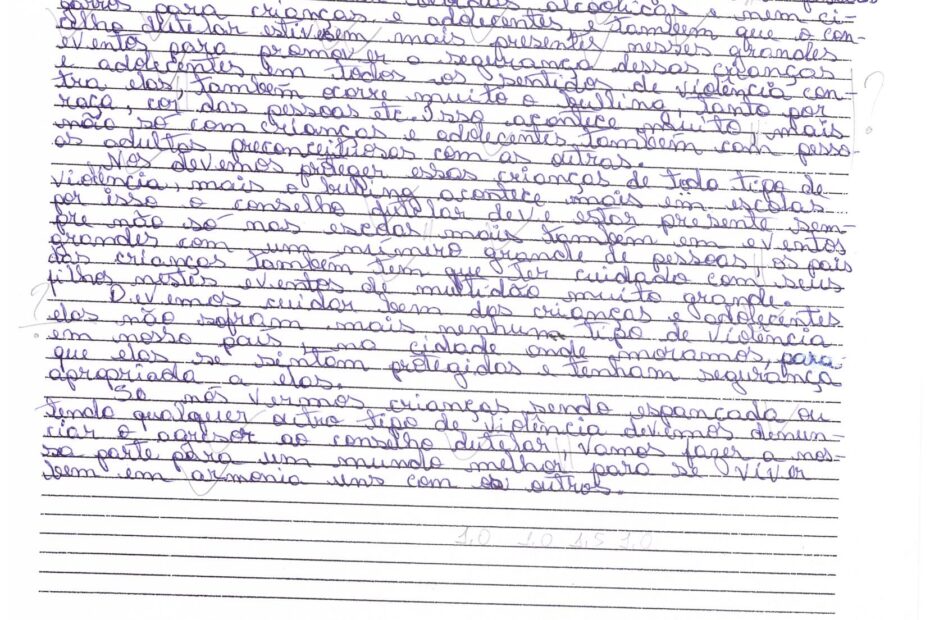 alcoólicas e nem ci-
garros para crianças e adolecentes e também que o con-
elho dutelar estivesem mais presentes nesses grandes
eventos para promover o segurança dessas crianças
e adolecentes em todos os sentidos de violência con-
tra elas, também ocorre muito o bulling, tanto por
raça, cor das pessoas etc. Isso acontece muito mais
não só com crianças e adolecentes também com pesso-
as adultas preconceituosas com as outras.
Nos devemos proteger essas crianças de todo tipo de
violência, mais o bulling acontece mais em escolas
por isso o conselho dutelar deve estar presente sem-
pre não só nas escolas mais também em eventos
grandes com um número grande de pessoas, os pais
das crianças também tem que ter cuidado com seus
filhos nestes eventos de multidão muito grande.
? Devemos cuidar bem das crianças e adolecentes
elas não sofram mais nenhum tipo de violência
em nosso país, na cidade onde moramos, para
que elas se sintam protegidas e tenham segurança
apropriada a elas.
So nós vermos crianças sendo espancada ou
tendo qualquer outro tipo de violência devemos denun-
ciar o agresor ao conselho dutelar, vamos fazer a nos-
sa parte para um mundo melhor, para se viver
bem em armonia uns com os outros.
1,0 1,0 1,5 1,0